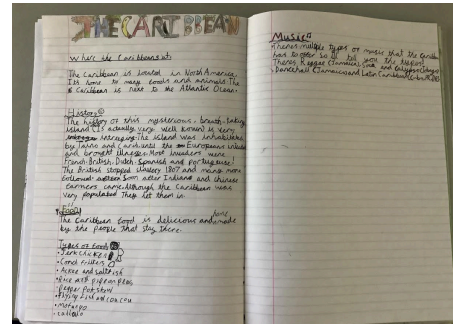 THE CARIBBEAN
Where the Caribbeans at
The Caribbean is located in North America.
Its home to many foods and animals. The
Caribbean is next to the Atlantic Ocean.
History
The history of this mysterious, breath taking
island (Is actually very well known) is very
intruiging. The island was inhabitated
by Taino and Carib until the Europeans
and brought illness. Most invaders were
French, British, Dutch, Spanish and portuguese!
The British stopped slavery 1807 and many more
followed. Soon after Indians and chinese
farmers came. Although the Caribbean was
very populated They let them in.
Food!
The Caribbean food is delicious and made
by the people that stay there.
Types of Food
• Jerk Chicken
• Conch Fritters
• Ackee and saltfish
• Rice and pigeon peas
• Pepper Pot stew
• flying fish and cou cou
• Mofongo
• callaloo
Music
Theres multiple types of music that the
has to offer so ill tell you the types!
Theres Reggae (Jamaica),
Dancehall (Jamaica) and Latin Caribbean